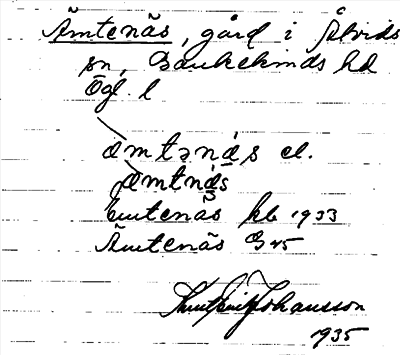 Ämtenäs, gård i Åtvids
sn, Bankekinds hd
Ögl. l
ämtənä̱s el.
ämtnäs
Emtenäs kb 1933
Ämtenäs G 45
Knut Erik Johansson
1935